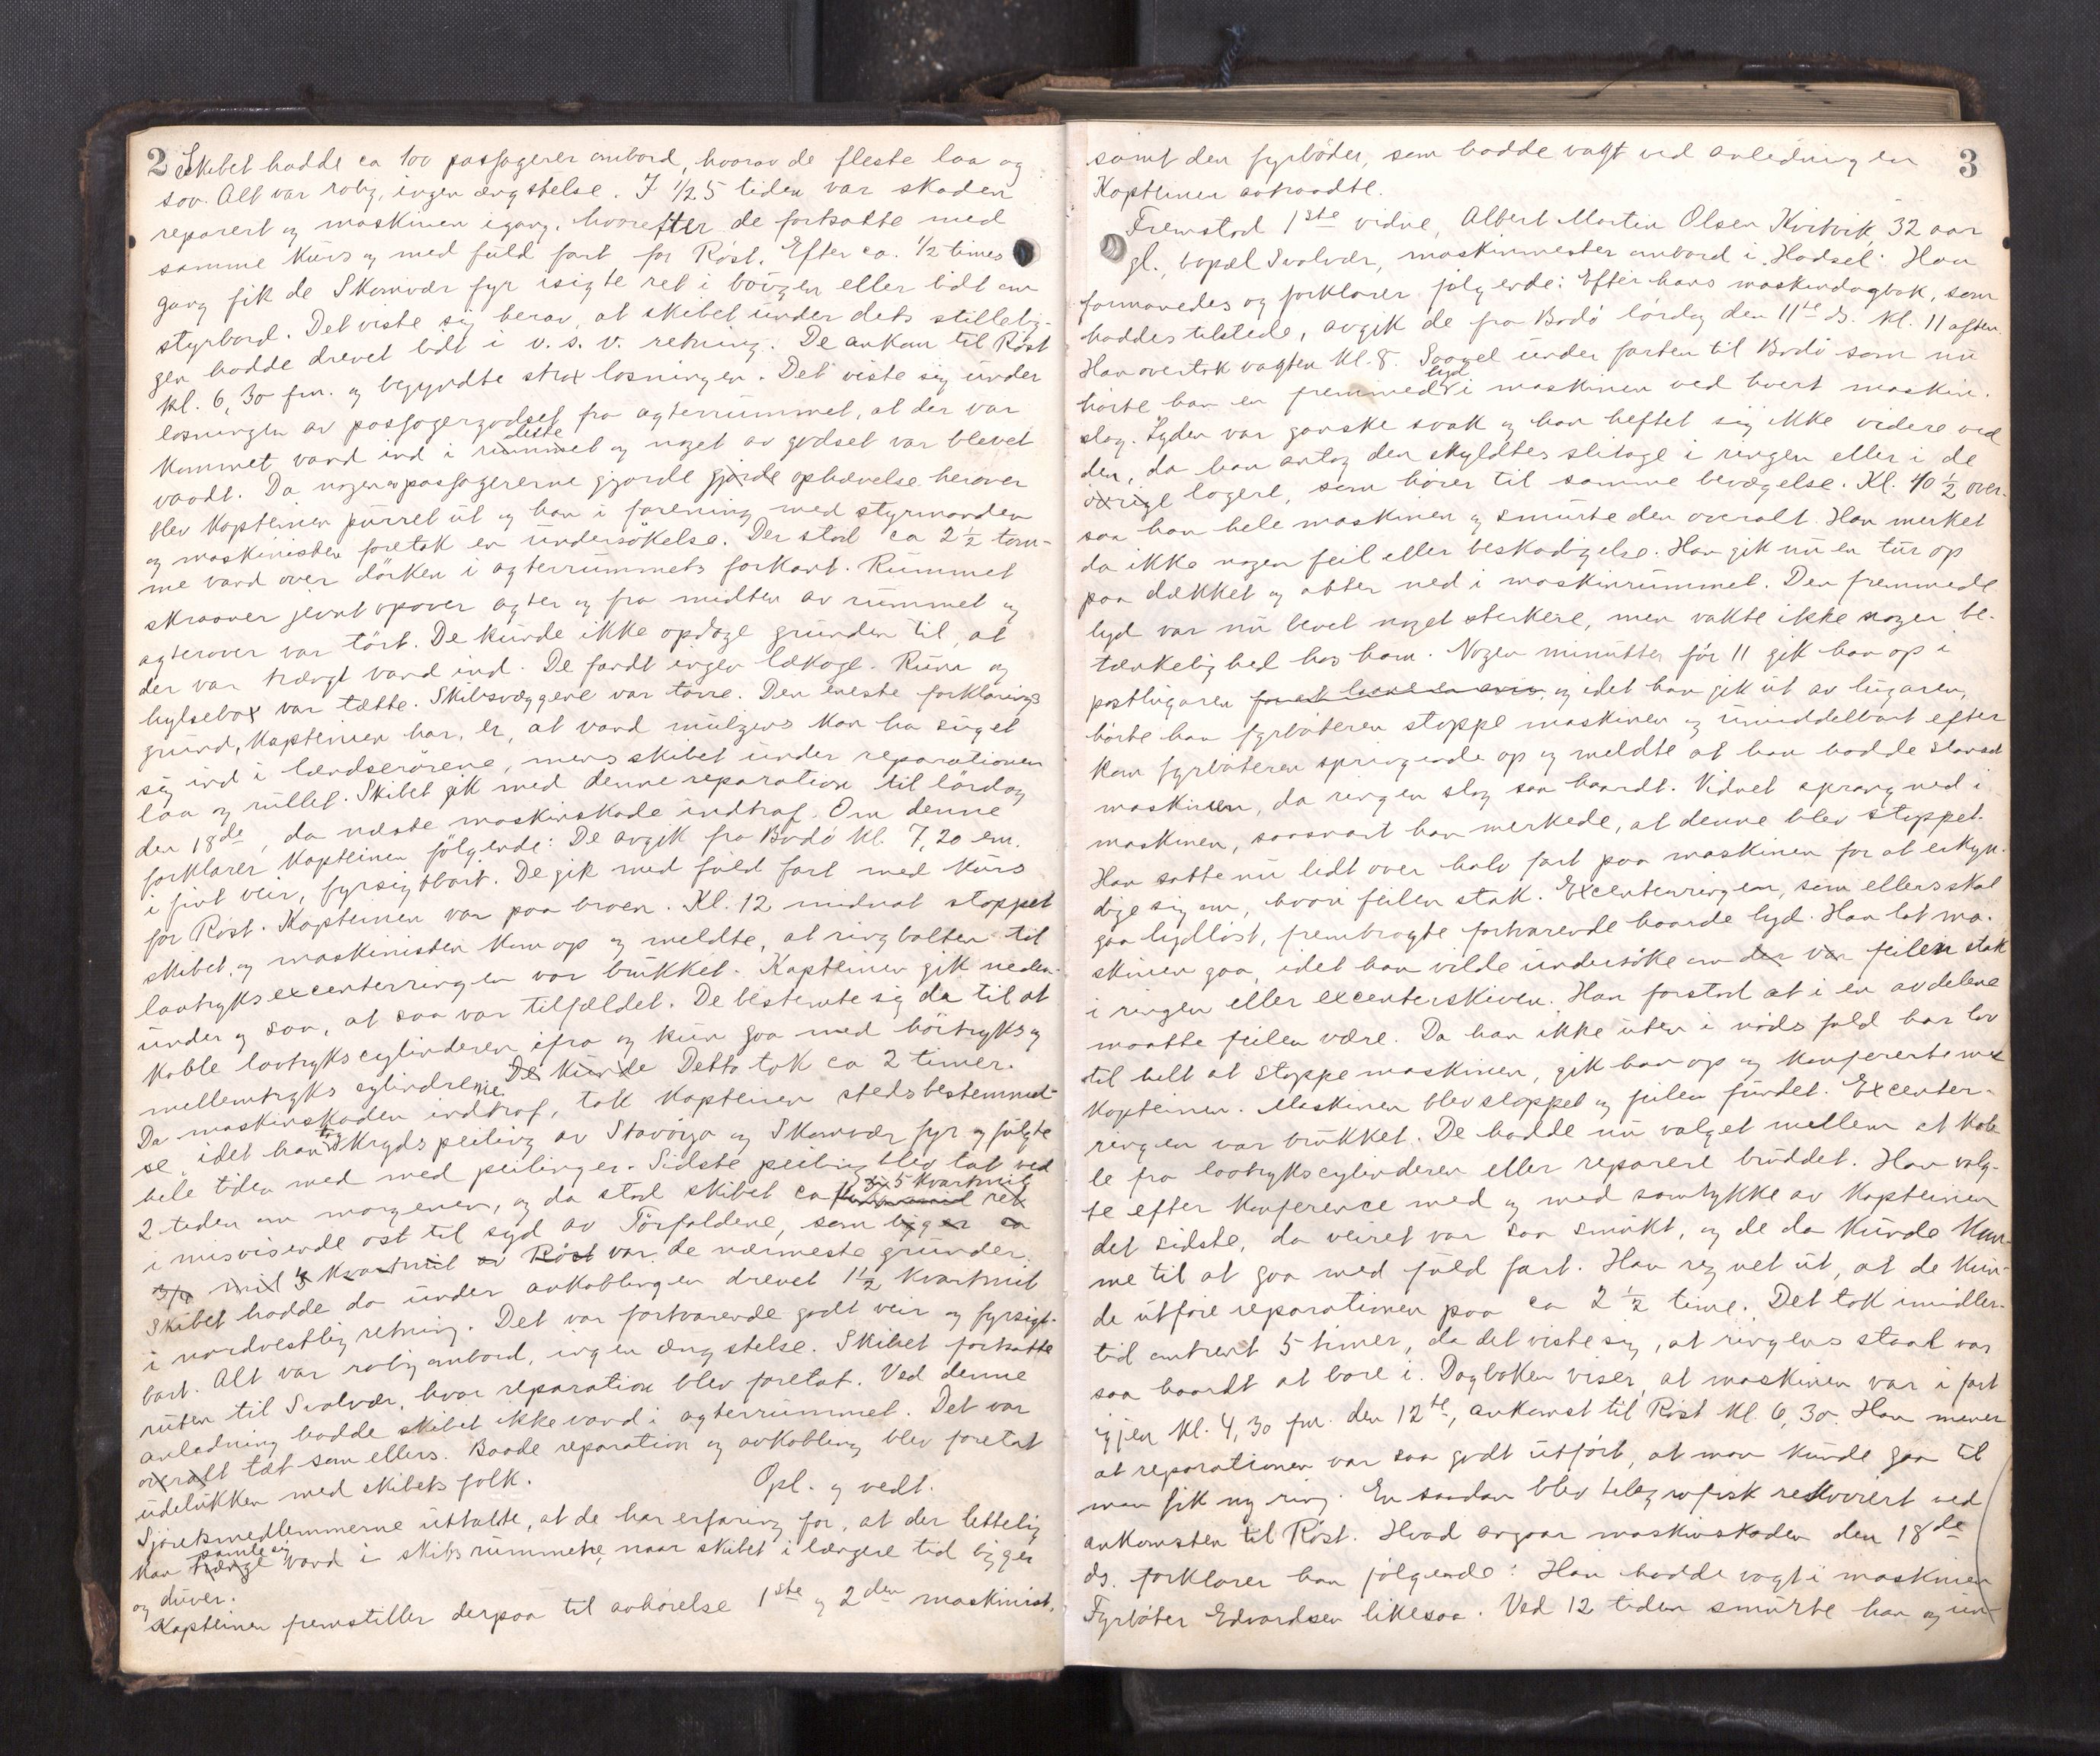 2 Skibet hadde ca 100 passagerer ombord, hvorav de fleste laa og
sov. Alt var rolig, ingen ængstelse. I 1/2 5 tiden var skaden
reparert og maskinen igang, hvorefter de fortsatte med
samme kurs og med fuld fart for Röst. Efter ca. 1/2 times
gang fik de Skomvær fyr isigte ret i bougen eller lidt om
styrbord. Det viste sig herav, at skibet under dets stillelig-
gen hadde drevet lidt i v. s. v. retning. De ankom til Röst
kl. 6,30 fm. og begyndte strax losningen. Det viste sig under
losningen av passagergodset fra agterrummet, at der var
kommet vand ind i dette rummet og noget av godset var blevet
vaadt. Da nogen av passagererne gjorde gjorde ophævelse herover
blev kapteinen purret ut og han i forening med styrmanden
og maskinisten foretok en undersökelse. Der stod ca 2 1/2 tom-
me vand over dörken i agterrummets forkant. Rummet
skraaner jevnt opover agter og fra midten av rummet og
agterover var tört. De kunde ikke opdage grunden til, at
der var trængt vand ind. De fandt ingen lækage. Rum og
hylsebox var tætte. Skibsvæggene var törre. Den eneste forklarings
grund, kapteinen har, er, at vand muligens kan ha suget
sig ind i lændserörene, mens skibet under reparationen
laa og rullet. Skibet gik med denne reparation til lördag
den 18de, da næste maskinskade indtraf. Om denne
forklarer kapteinen fölgende: De avgik fra Bodö kl. 7,20 em.
i fint veir, fyrsigtbart. De gik med fuld fart med kurs
for Röst. Kapteinen var paa broen. Kl. 12 midnat stoppet
skibet, og maskinisten kom op og meldte, at ringbolten til
lavtryksexcenterringen var brukket. Kapteinen gik neden-
under og saa, at saa var tilfældet. De bestemte sig da til at
koble lavtrykscylinderen ifra og kun gaa med höitryks og
mellemtryks cylindrene De kunde Dette tok ca 2 timer.
Da maskinskaden indtraf, tok kapteinen stedsbestemmel-
se idet han tog Krydspeiling av Stavöya og Skomvær fyr og fulgte
hele tiden med med peilinger. Sidste peiling blev tat ved
2 tiden om morgenen, og da stod skibet ca 5 kvartmil ret
i misvisende ost til syd av Törfaldene, som ligger ca
3/4 mil 3 kvartmil av Röst var de nærmeste grunder.
Skibet hadde da under avkoblingen drevet 1 1/2 kvartmil
i nordvestlig retning. Det var fortvarende godt veir og fyrsigt-
bart. Alt var rolig ombord, ingen ængstelse. Skibet fortsatte
ruten til Svolvær, hvor reparation blev foretat. Ved denne
anledning hadde skibet ikke vand i agterrummet. Det var
overalt tæt som ellers. Baade reparation og avkobling blev foretat
udelukken med skibets folk. Opl. og vedt.
Sjöretsmedlemmerne uttalte, at de har erfaring for, at der lettelig
kan trænge samle sig vand i skibsrummene, naar skibet i længere tid ligger
og duver.
Kapteinen fremstiller derpaa til avhörelse 1ste og 2den maskinist,
3
samt den fyrböder, som hadde vagt ved anledningen
Kapteinen avtraadte.
Fremstod 1ste vidne, Albert Martin Olsen Kvitvik, 32 aar
gl., bopæl Svolvær, maskinmester ombord i „Hadsel“. Han
formanedes og forklarer fölgende: Efter hans maskindagbok, som
haddes tilstede, avgik de fra Bodö lördag den 11te ds. kl. 11 aften.
Han overtok vagten kl. 8. Saavel under farten til Bodö som nu
hörte han en fremmed lyd i maskinen ved hvert maskin-
slag. Lyden var ganske svak og han heftet sig ikke videre ved
den, da han antog den skyldtes slitage i ringen eller i de
övrige lagere, som hörer til samme bevægelse. Kl. 10 1/2 over-
saa han hele maskinen og smurte den overalt. Han merket
da ikke nogen feil eller beskadigelse. Han gik nu en tur op
paa dækket og atter ned i maskinrummet. Den fremmede
lyd var nu blevet noget sterkere, men vakte ikke nogen be-
tænkelighed hos ham. Nogen minutter för 11 gik han op i
postlugaren for at laane en avis og idet han gik ut av lugaren,
hörte han fyrböteren stoppe maskinen og umiddelbart efter
kom fyrböteren springende op og meldte at han hadde stanset
maskinen, da ringen slog saa haardt. Vidnet sprang ned i
maskinen, saasnart han merkede, at denne blev stoppet.
Han satte nu lidt over halv fart paa maskinen for at erkyn-
dige sig om, hvori feilen stak. Excenterringen, som ellers skal
gaa lydlöst, frembragte fortvarende haarde lyd. Han lot ma-
skinen gaa, idet han vilde undersöke om der var feilen stak
i ringen eller excenterskiven. Han forstod at i en av delene
maatte feilen være. Da han ikke uten i nöds fald har lov
til helt at stoppe maskinen, gik han op og konfererte med
kapteinen. Maskinen blev stoppet og feilen fundet. Excenter-
ringen var brukket. De hadde nu valget mellem at kob-
le fra lavtrykscylinderen eller reparere bruddet. Han valg-
te efter konference med og med samtykke av kapteinen
det sidste, da veiret var saa smukt, og de da kunde kom-
me til at gaa med fuld fart. Han regnet ut, at de kun-
de utföre reparationen paa ca 2 1/2 time. Det tok imidler-
tid omtrent 5 timer, da det viste sig, at ringens staal var
saa haardt at bore i. Dagboken viser, at maskinen var i fart
igjen kl. 4,30 fm. den 12te, ankomst til Röst kl. 6,30. Han mener
at reparationen var saa godt utfört, at man kunde gaa til
man fik ny ring. En saadan blev telegrafisk rekvirert ved
ankomsten til Röst. Hvad angaar maskinskaden den 18de
ds. forklarer han fölgende: Han hadde vagt i maskinen
Fyrböter Edvardsen likesaa. Ved 12 tiden smurte han og un